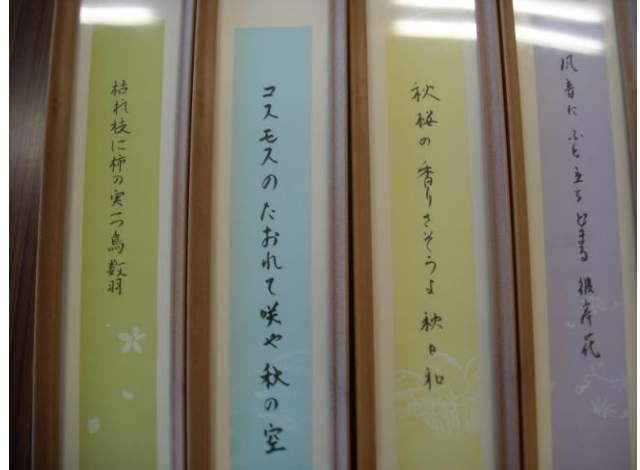 風音に ふと立ちどまる 彼岸花
秋桜の 香りさそうよ 秋日和
コスモスのたおれて咲や秋の空
枯れ枝に柿の実一つ鳥数羽